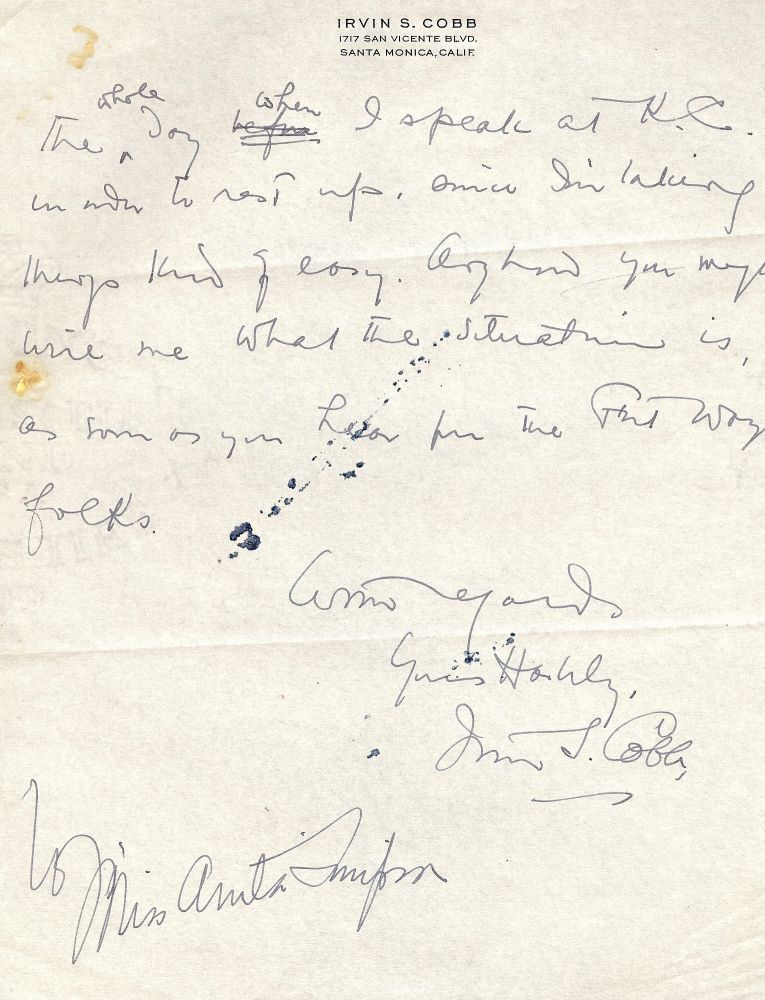 IRVIN S. COBB
1717 SAN VICENTE BLVD.
SANTA MONICA, CALIF.
whole when
The ‸ Day before I speak at K.C.
in order to rest up, since I'm taking
things kind of easy. you
wire me what the situation is,
as soon as you hear from the Fort Way
folks.
Warm regards
Yours
Irvin S. Cobb,
To Miss Anita Simpson